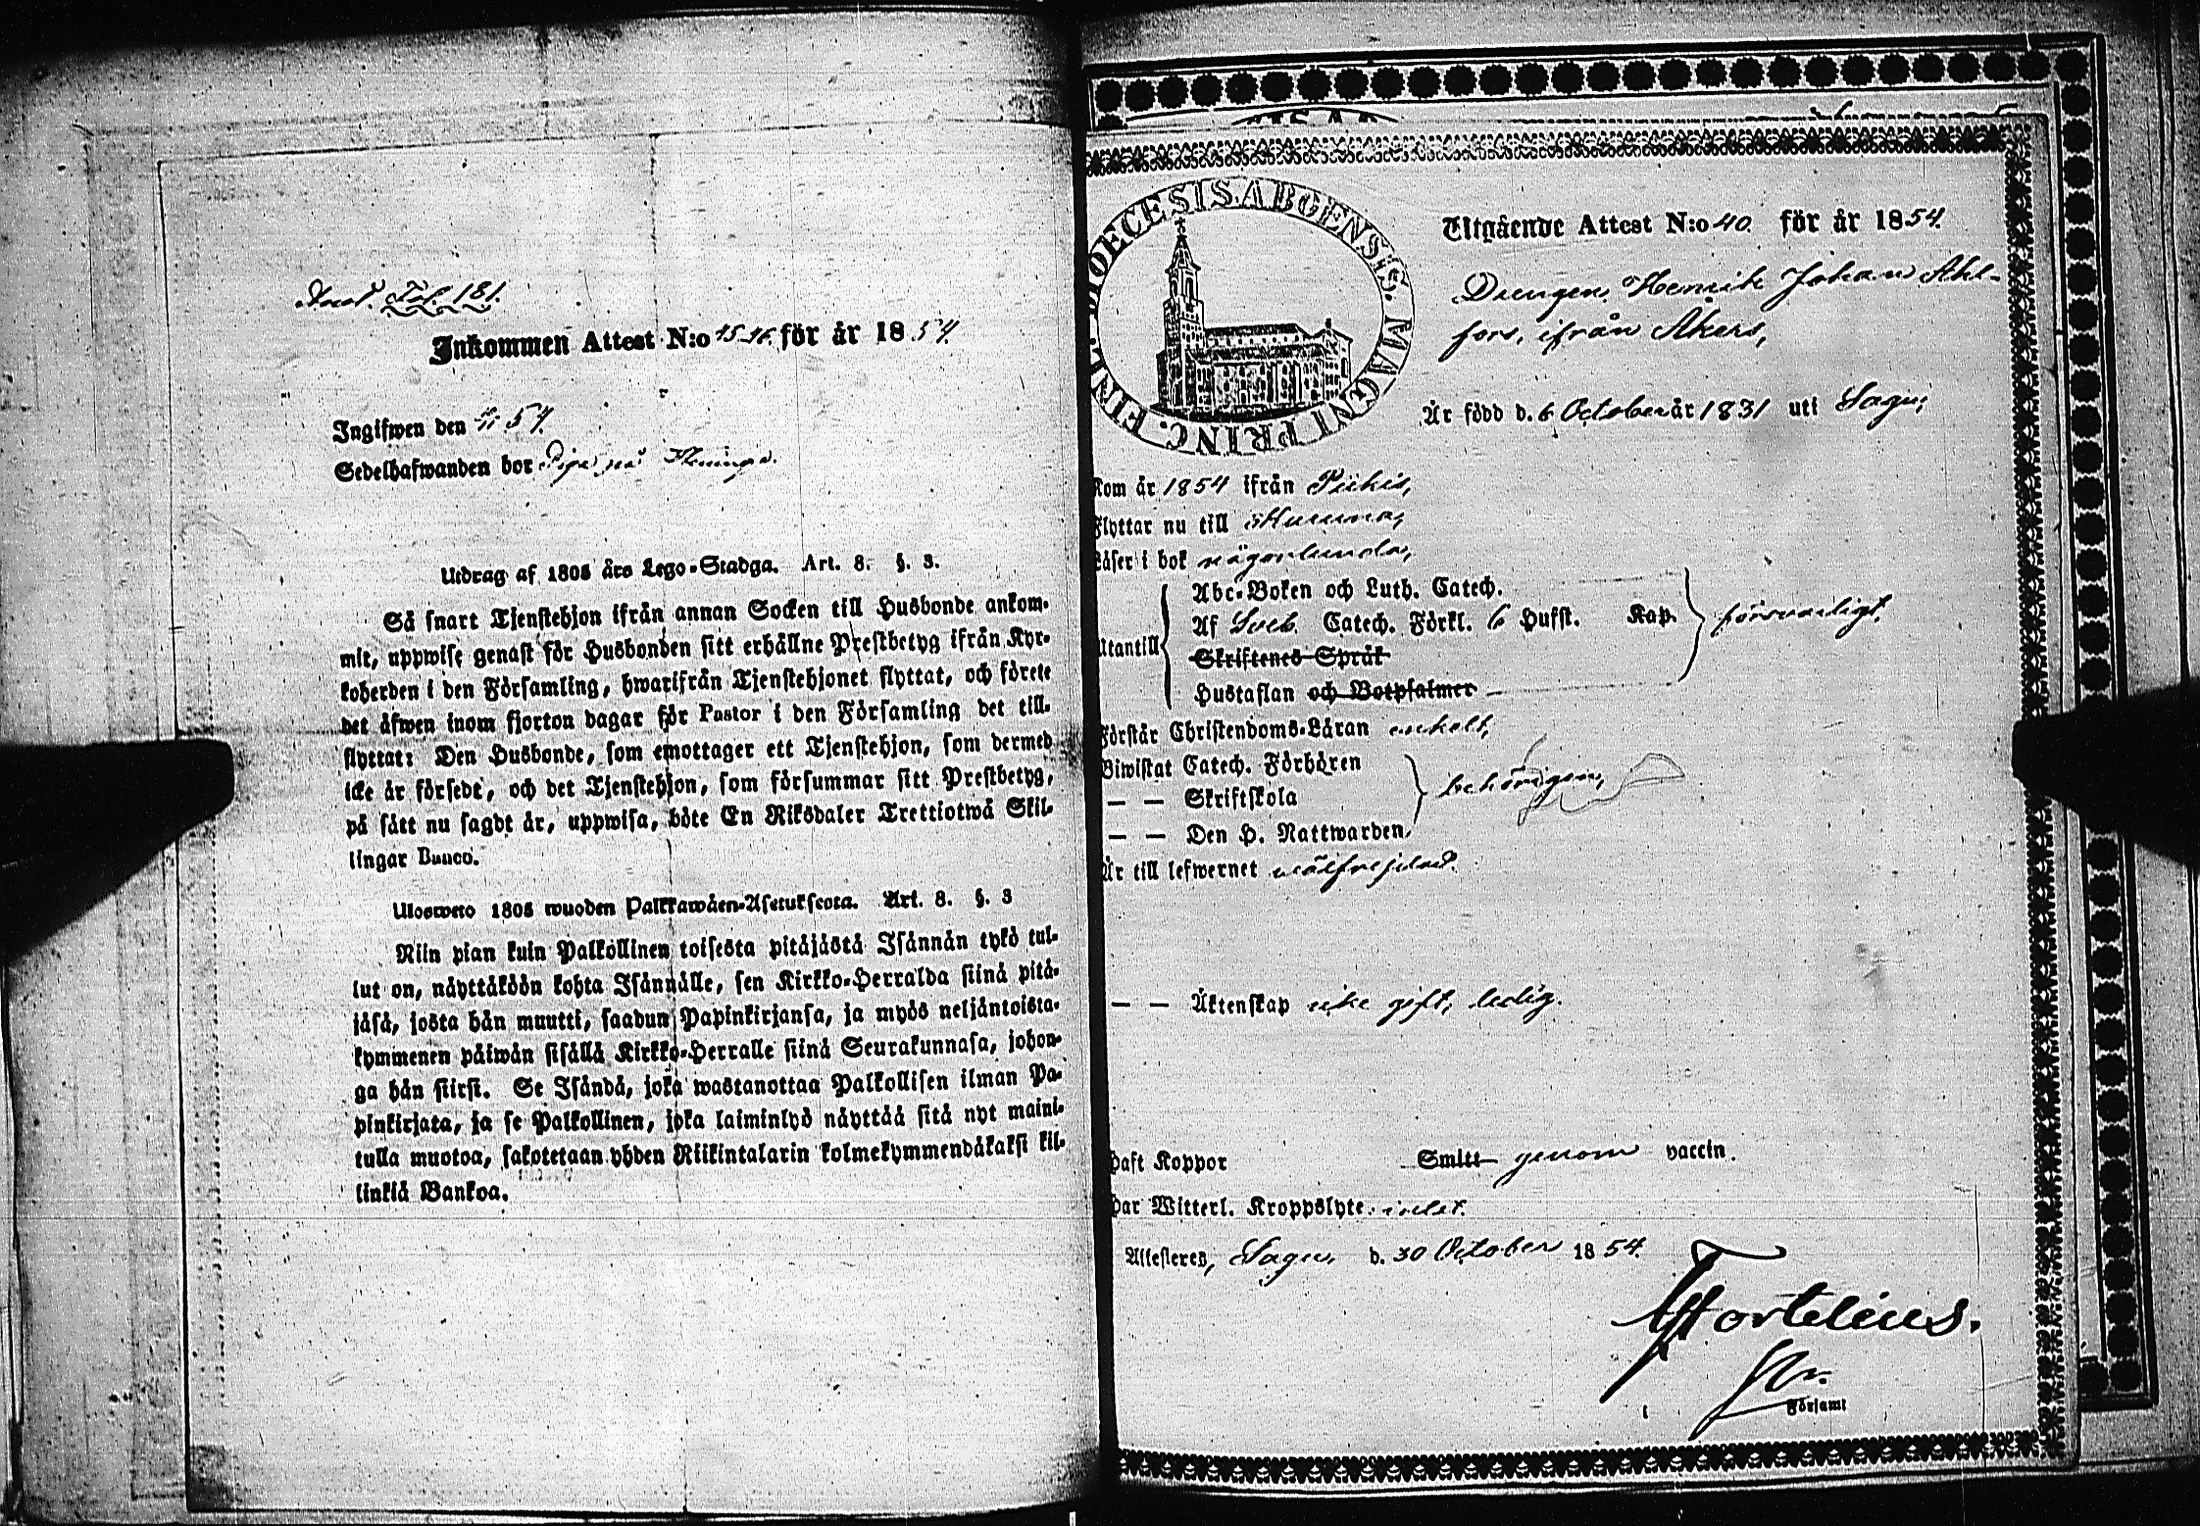 Fol. 181.
Inkommen Attest N:o 45-46. för år 1854.
Ingifwen den 54.
Sedelhafwanden bor
Utdrag af 1805 års Lego-Stadga. Art. 8. §. 3.
Så snart Tjenstehjon ifrån annan Socken till Husbonde ankom-
mit, uppwise genast för Husbonden sitt erhållne Prestbetyg ifrån Kyr-
koherden i den Församling, hwarifrån Tjenstehjonet flyttat, och förete
det äfwen inom fjorton dagar för Pastor i den Församling det till-
flyttat: Den Husbonde, som emottager ett Tjenstehjon, som dermed
icke är försedt, och det Tjenstehjon, som försummar sitt Prestbetyg,
på sätt nu sagdt är, uppwisa, böte En Riksdaler Trettiotwå Skil-
lingar Banco.
Ulosweto 1805 wuoden Palkkawäen-Asetuksesta. Art. 8. §. 3
Niin pian kuin Palkollinen toisesta pitäjästä Isännän tykö tul-
lut on, näyttäköön kohta Isännälle, sen Kirkko-Herralda siinä pitä-
jäsä, josta hän muutti, saadun Papinkirjansa, ja myös neljäntoista-
kymmenen päiwän sisällä Kirkko-Herralle siinä Seurakunnasa, johon-
ga hän siirst. Se Isändä, joka wastanottaa Palkollisen ilman Pa-
pinkirjata, ja se Palkollinen, joka laiminlyö näyttää sitä nyt maini-
tulla muotoa, sakotetaan yhden Riikintalarin kolmekymmendäkaksi kil-
linkiä Bankoa.
DIOECESIS ABOENSIS. MAGNI PRINC. FINL.
Utgående Attest N:o 40. för år 1854.
Drengen Henrik Johan Ahl-
fors, ifrån Åkers,
Är född d. 6 October år 1831 uti Sagu;
Kom år 1854 ifrån Pickis,
Flyttar nu till
Läser i bok någorlunda,
Abc-Boken och Luth. Catech.
Utantill Af Sveb. Catech. Förkl. 6 Hufst. Kap. försvarligt,
Skriftenes Språk
Hustaflan och Botpsalmer
Förstår Christendoms-Läran enkelt,
Biwistat Catech. Förhören
— — Skriftskola behörigen,
— — Den H. Nattwarden,
Är till lefwernet wälfrejdad.
— — Äktenskap icke gift, ledig.
Haft Koppor Smitt genom vaccin.
Har Witterl. Kroppslyte. intet.
Attesteres, Sagu, d. 30 October 1854.
Hortelius.
i Församl